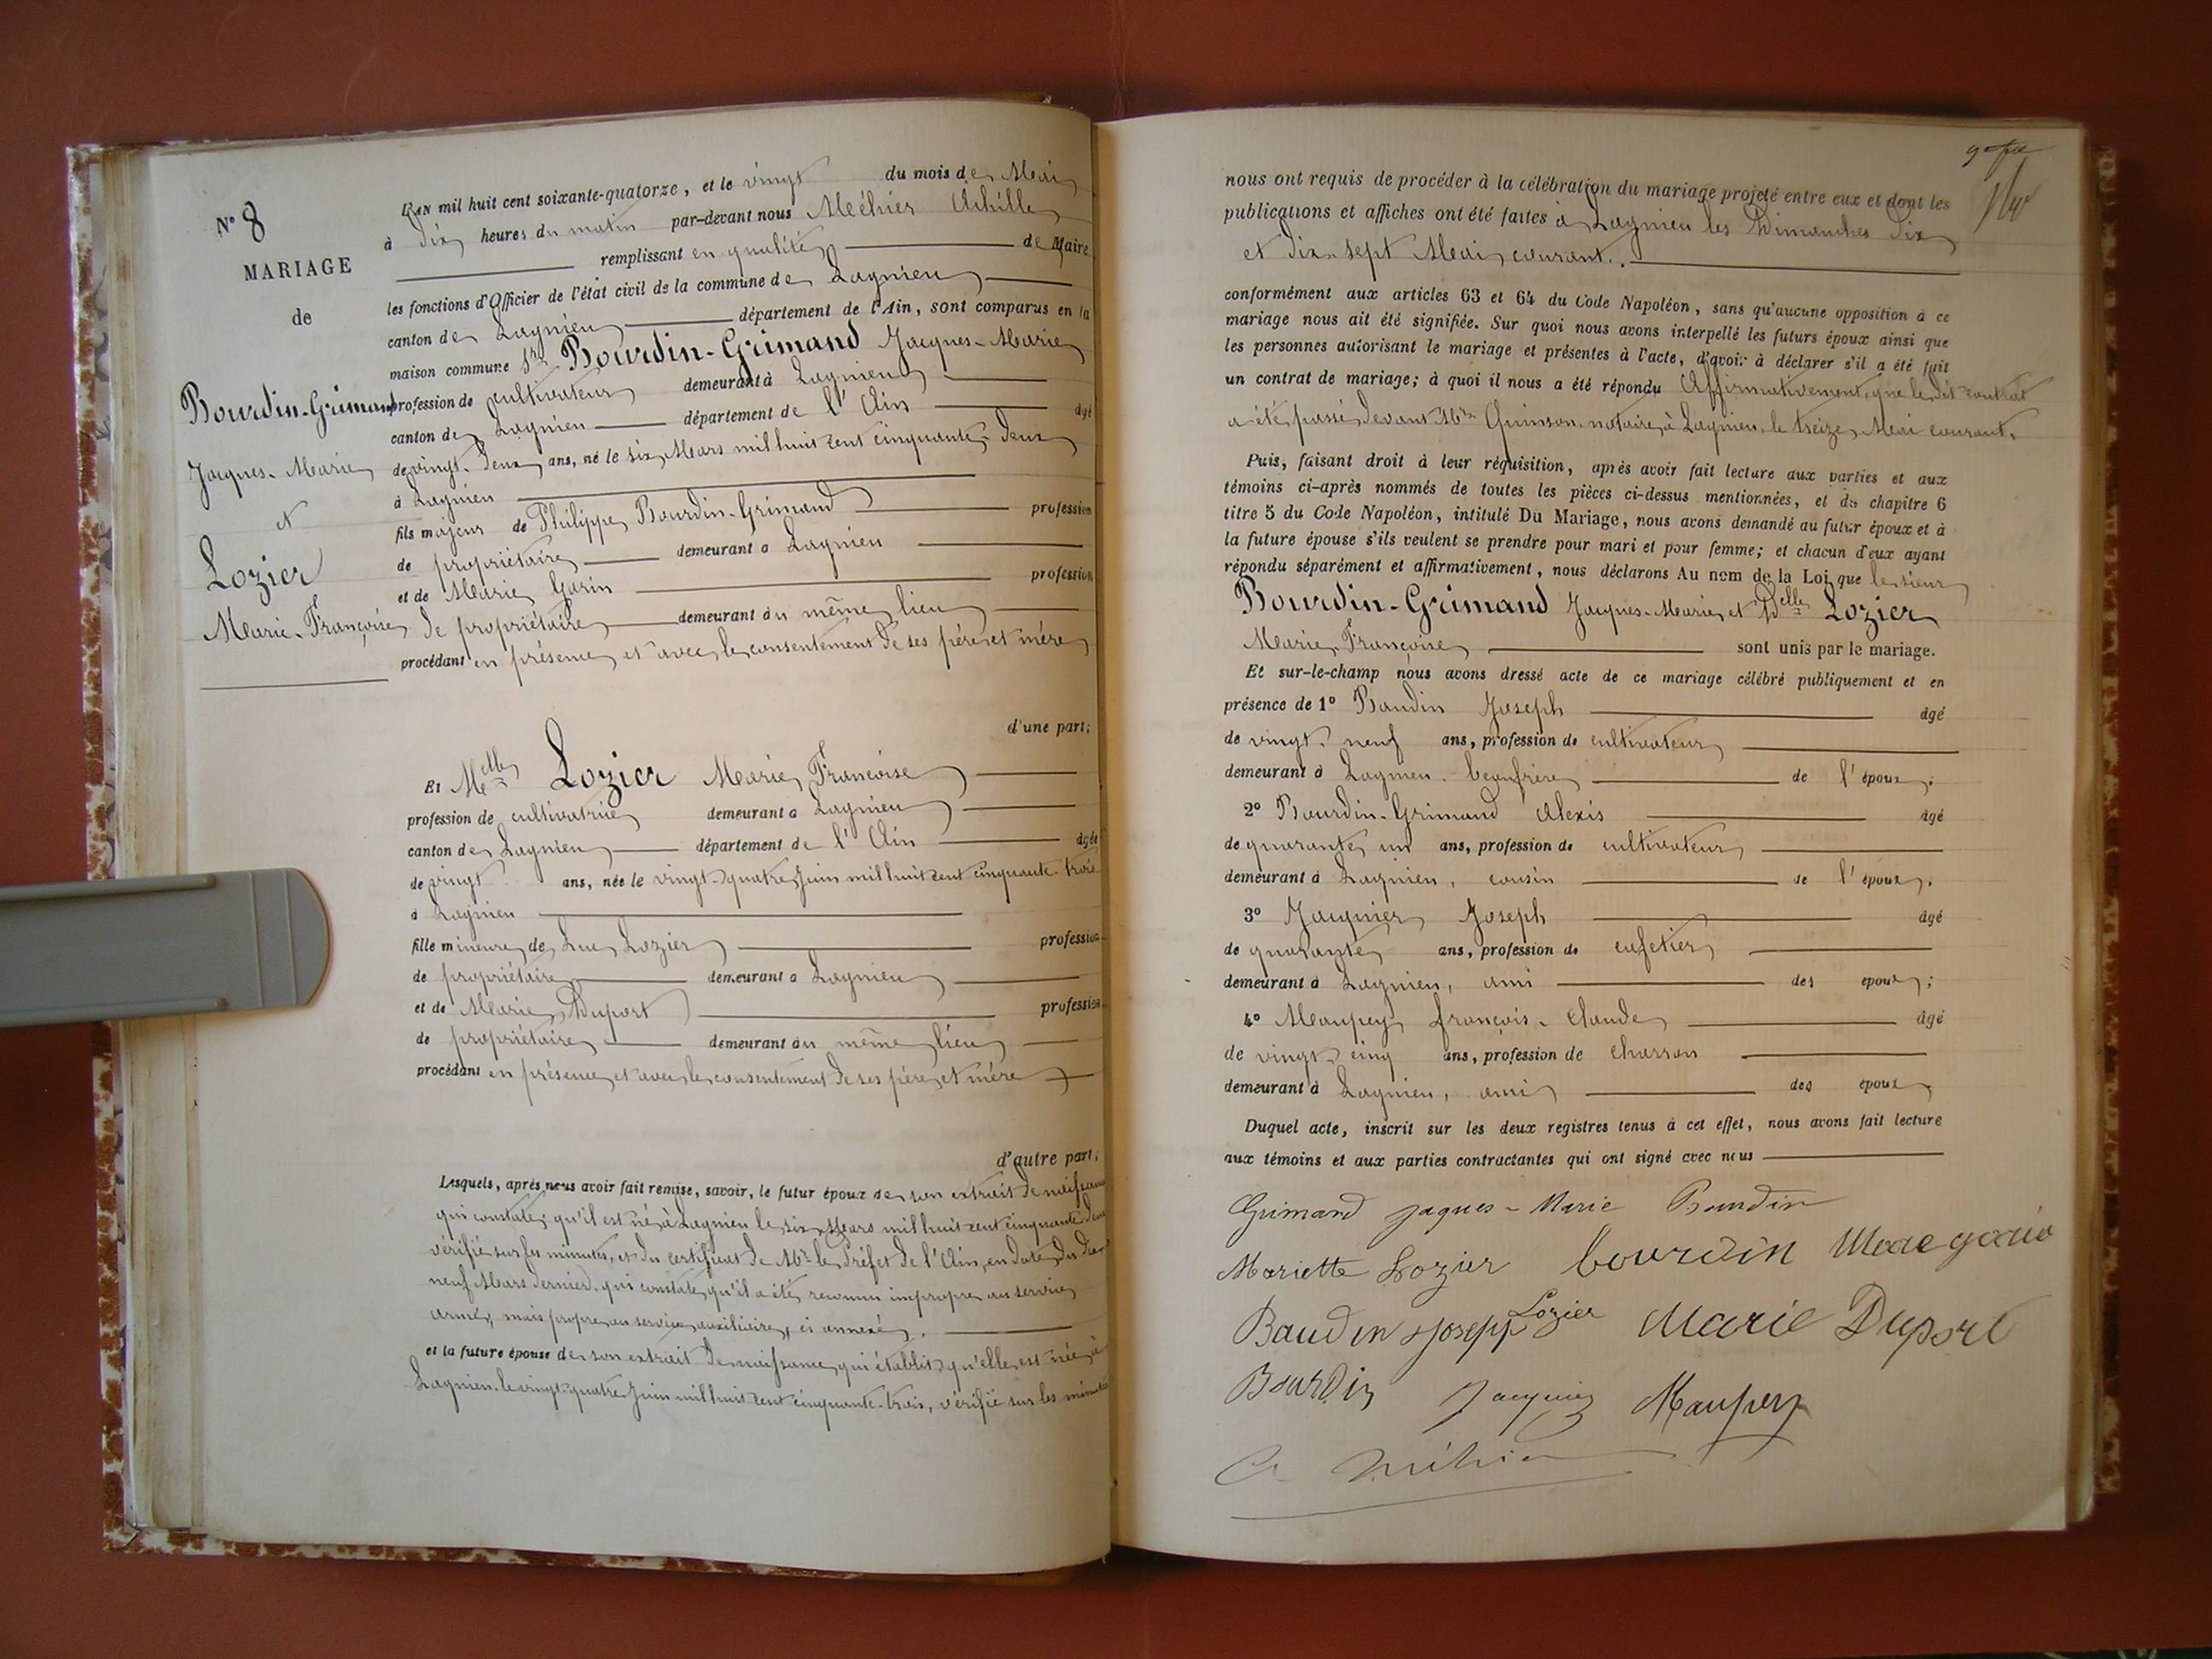 N° 8
MARIAGE
de
Bourdin-Grimand
Jacques-Marie
et
Lozier
Marie-Françoise
L'AN mil huit cent soixante-quatorze, et le vingt du mois de Mai
à dix heures du matin par-devant nous Méhier Achille
remplissant en qualité de Maire
les fonctions d'Officier de l'état civil de la commune de Lagnieu
canton de Lagnieu département de l'Ain, sont comparus en la
maison commune Sr Bourdin-Grimand Jacques-Marie
profession de cultivateur demeurant à Lagnieu
canton de Lagnieu département de l'Ain âgé
de vingt-deux ans, né le six Mars mil huit cent cinquante-deux
à Lagnieu
fils majeur de Philippe Bourdin-Grimand profession
de propriétaire demeurant à Lagnieu
et de Marie Garin profession
de propriétaire demeurant au même lieu
procédant en présence et avec le consentement de ses père et mère
d'une part;
Et Melle Lozier Marie Françoise
profession de cultivatrice demeurant à Lagnieu
canton de Lagnieu département de l'Ain âgée
de vingt ans, née le vingt-quatre Juin mil huit cent cinquante-trois
à Lagnieu
fille mineure de Luc Lozier profession
de propriétaire demeurant à Lagnieu
et de Marie Duport profession
de propriétaire demeurant au même lieu
procédant en présence et avec le consentement de ses père et mère
d'autre part;
Lesquels, après nous avoir fait remise, savoir, le futur époux de son extrait de naissance
qui constate qu'il est né à Lagnieu le six Mars mil huit cent cinquante-deux
vérifié sur les minutes, et du certificat de Mr le Préfet de l'Ain, en date du dix
neuf Mars dernier, qui constate qu'il a été reconnu impropre au service
armé, mais propre au service auxiliaire, ci annexé.
et la future épouse de son extrait de naissance, qui établit qu'elle est née à
Lagnieu le vingt-quatre Juin mil huit cent cinquante-trois, vérifié sur les minutes
nous ont requis de procéder à la célébration du mariage projeté entre eux et dont les
publications et affiches ont été faites à Lagnieu les Dimanches dix
et dix-sept Mai courant.
conformément aux articles 63 et 64 du Code Napoléon, sans qu'aucune opposition à ce
mariage nous ait été signifiée. Sur quoi nous avons interpellé les futurs époux ainsi que
les personnes autorisant le mariage et présentes à l'acte, d'avoir à déclarer s'il a été fait
un contrat de mariage; à quoi il nous a été répondu Affirmativement, que le dit contrat
a été passé devant Me Quinson notaire à Lagnieu le treize Mai courant.
Puis, faisant droit à leur réquisition, après avoir fait lecture aux parties et aux
témoins ci-après nommés de toutes les pièces ci-dessus mentionnées, et du chapitre 6
titre 5 du Code Napoléon, intitulé Du Mariage, nous avons demandé au futur époux et à
la future épouse s'ils veulent se prendre pour mari et pour femme; et chacun d'eux ayant
répondu séparément et affirmativement, nous déclarons Au nom de la Loi que le sieur
Bourdin-Grimand Jacques-Marie et Delle Lozier
Marie Françoise sont unis par le mariage.
Et sur-le-champ nous avons dressé acte de ce mariage célébré publiquement et en
présence de 1° Baudin Joseph âgé
de vingt-neuf ans, profession de cultivateur
demeurant à Lagnieu, beaufrère de l'époux;
2° Bourdin-Grimand Alexis âgé
de quarante un ans, profession de cultivateur
demeurant à Lagnieu, cousin de l'époux;
3° Jacquier Joseph âgé
de quarante ans, profession de cafetier
demeurant à Lagnieu, ami des époux;
4° Maupey françois-Claude âgé
de vingt-cinq ans, profession de charron
demeurant à Lagnieu, ami des époux
Duquel acte, inscrit sur les deux registres tenus à cet effet, nous avons fait lecture
aux témoins et aux parties contractantes qui ont signé avec nous
Grimand Jaques-Marie Bourdin
Mariette Lozier bourdin Marie garin
Baudin Joseph Lozier Marie Duport
Bourdin Jacquier Maupey
A Méhier